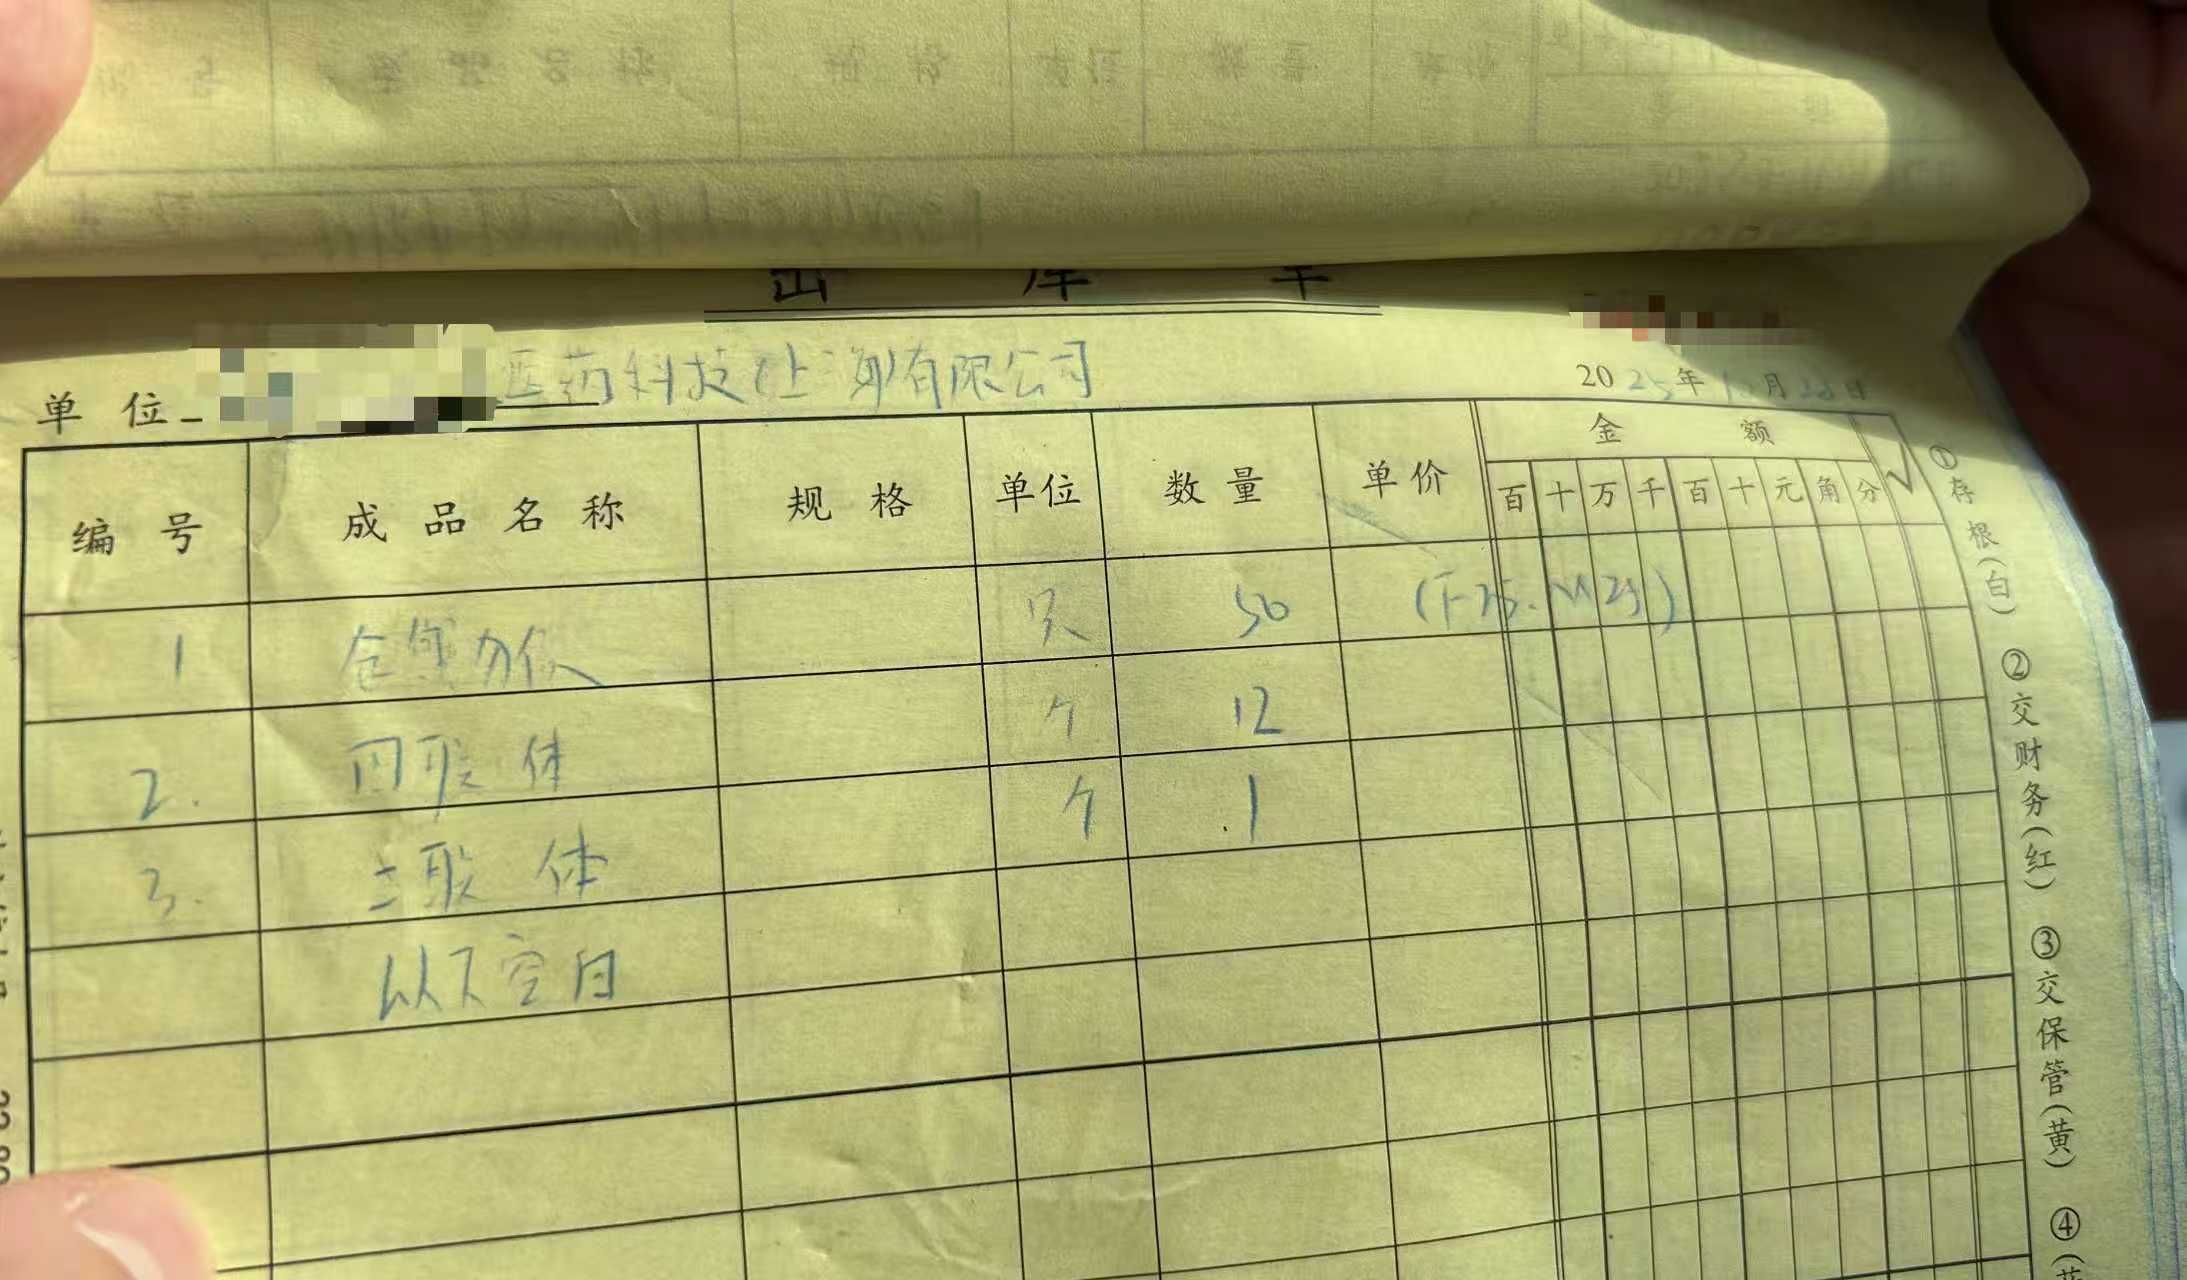 出库单
单位 医药科技(上海)有限公司
2025年10月28日
编号 成品名称 规格 单位 数量 单价 金额 √
百 十 万 千 百 十 元 角 分
1 只 50
2. 四联体 个 12
3. 三联体 个 1
以下空白
①存根(白) ②交财务(红) ③交保管(黄) ④